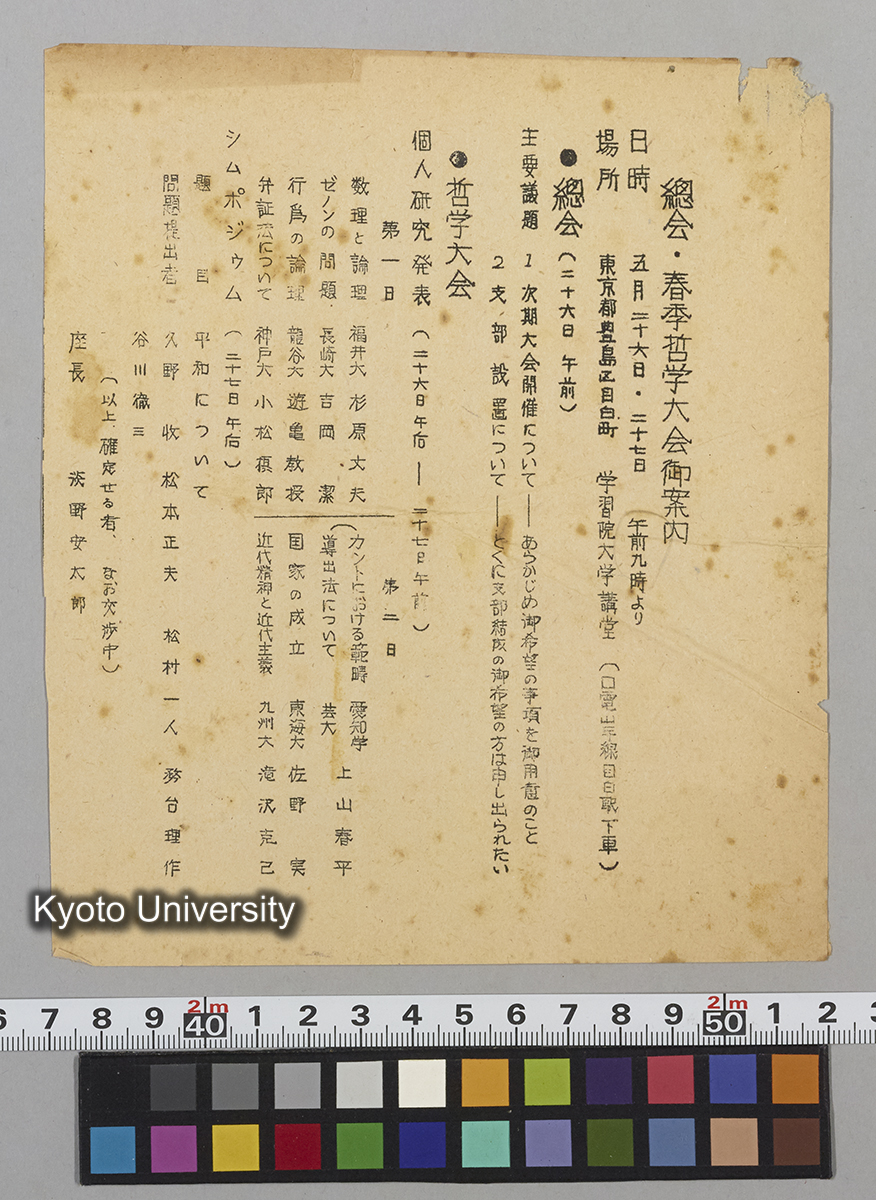 總会・春季哲学大会御案内
日時 五月二十六日・二十七日 午前九時より
場所 東京都豊島区目白町 学習院大学講堂 (口電山手線目白駅下車)
●總会 (二十六日午前)
主要議題 1 次期大会開催について——あらかじめ御希望の事項を御用意のこと
2 支部設置について——とくに支部結成の御希望の方は申し出られたい
●哲学大会
個人研究発表 (二十六日午后——二十七日午前)
第一日
数理と論理 福井大 杉原丈夫
ゼノンの問題 長崎大 吉岡潔
行爲の論理 龍谷大 遊亀教授
弁証法について 神戸大 小松摂郎
第二日
(カントにおける範疇 愛知学
導出法について 芸大 上山春平
国家の成立 東海大 佐野実
近代精神と近代主義 九州大 滝沢克己
シムポジゥム (二十七日午后)
題目 平和について
問題提出者 久野收 松本正夫 松村一人 務台理作
谷川徹三
(以上、確定せる者、なお交渉中)
座長 淡野安太郎
Kyoto University
6 7 8 9 40 1 2 3 4 5 6 7 8 9 50 1 2 3
2m 2m